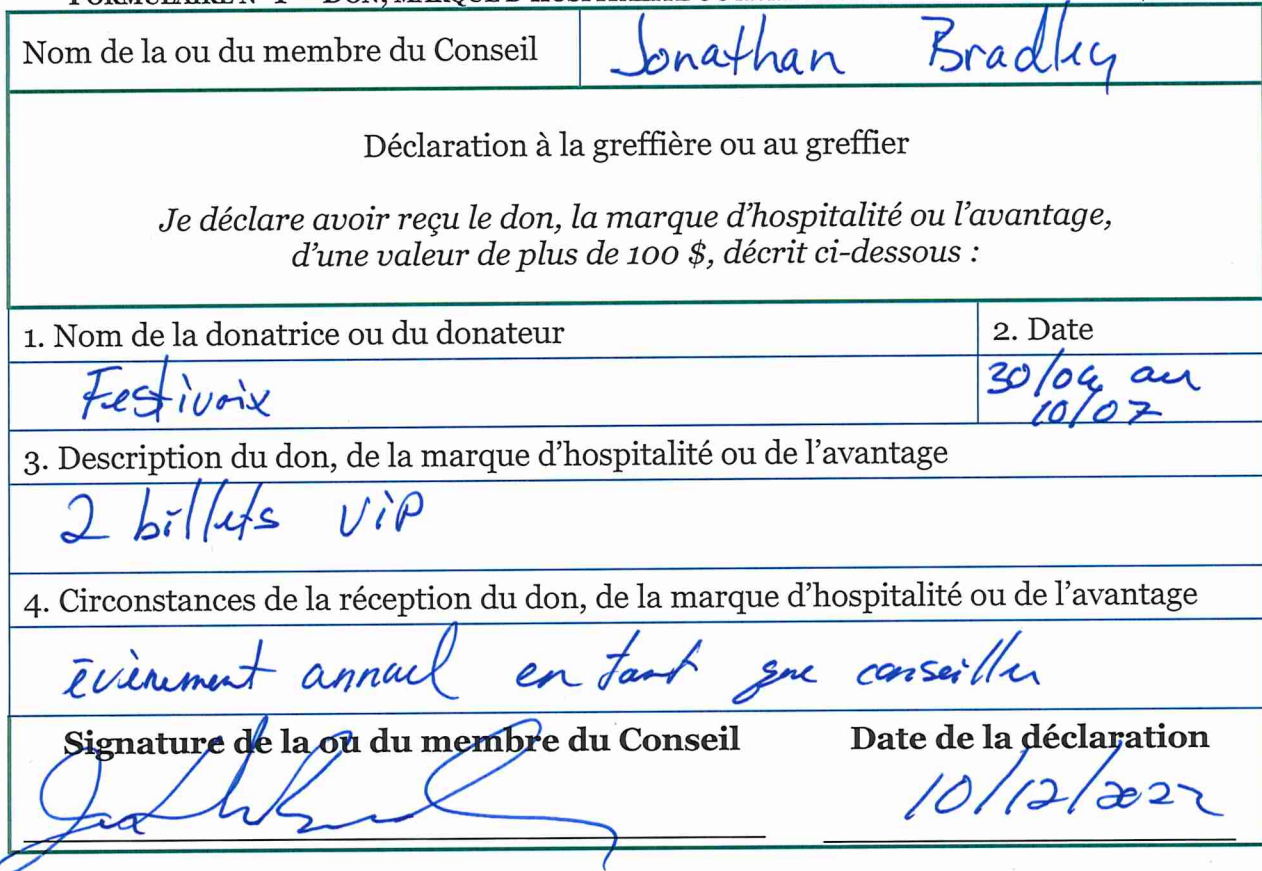 Nom de la ou du membre du Conseil
Jonathan Bradley
Déclaration à la greffière ou au greffier
Je déclare avoir reçu le don, la marque d'hospitalité ou l'avantage,
d'une valeur de plus de 100 $, décrit ci-dessous :
1. Nom de la donatrice ou du donateur
2. Date
Festivoix
30/06 au
10/07
3. Description du don, de la marque d'hospitalité ou de l'avantage
2 billets ViP
4. Circonstances de la réception du don, de la marque d'hospitalité ou de l'avantage
évènement annuel en tant que conseiller
Signature de la ou du membre du Conseil
Date de la déclaration
10/12/2022